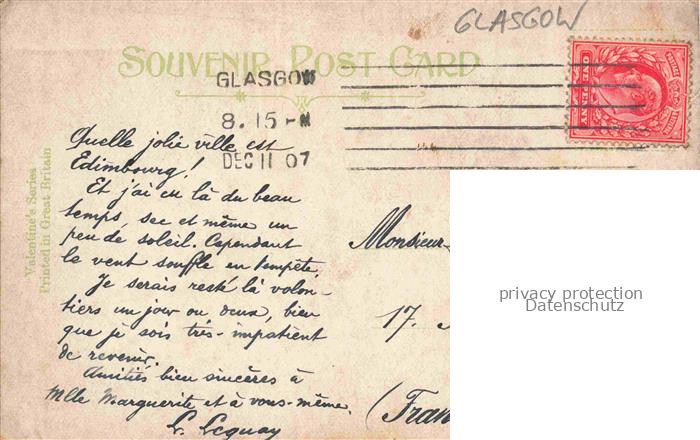 GLASGOW
SOUVENIR POST CARD
GLASGOW
8.15 PM
DEC 11 07
ONE PENNY
Valentine's Series
Printed in Great Britain
Quelle jolie ville est
Edimbourg!
Et j'ai eu là du beau
temps, sec et même un
peu de soleil. Cependant
le vent souffle en tempête.
Je serais resté là volon-
tiers un jour ou deux, bien
que je sois très-impatient
de revenir.
Amitiés bien sincères à
Mlle Marguerite et à vous-même.
L. Lequay
Monsieur
17.
(Fran
privacy protection
Datenschutz